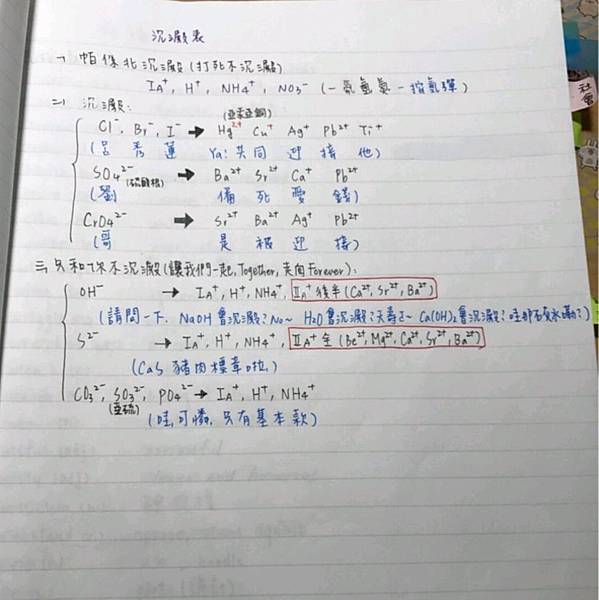 沉澱表
一、帕係北沉澱(打死不沉澱)
IA⁺, H⁺, NH4⁺, NO3⁻ (一氫氫氮-控氣彈)
二、沉澱:
(亞汞亞銅)
Cl⁻, Br⁻, I⁻ → Hg²⁺ Cu⁺ Ag⁺ Pb²⁺ Ti⁺
(呂秀蓮 Ya! 共同迎接他)
SO4²⁻ (硫酸根) → Ba²⁺ Sr²⁺ Ca⁺ Pb²⁺
(劉 備死愛錢)
CrO4²⁻ → Sr²⁺ Ba²⁺ Ag⁺ Pb²⁺
(哥 是被迎接)
三、只和你不沉澱(讓我們一起, Together, 走向Forever):
OH⁻ → IA⁺, H⁺, NH4⁺, IIA⁺後半(Ca²⁺, Sr²⁺, Ba²⁺)
(請問一下, NaOH會沉澱? No~ H2O會沉澱? 天壽～ Ca(OH)2會沉澱? 哇那石灰水嘞?)
S²⁻ → IA⁺, H⁺, NH4⁺, IIA⁺全(Be²⁺, Mg²⁺, Ca²⁺, Sr²⁺, Ba²⁺)
(CaS 豬肉標章啦)
CO3²⁻, SO3²⁻, PO4²⁻ → IA⁺, H⁺, NH4⁺
(亞硫)
(哇, 可憐, 只有基本款)
社會